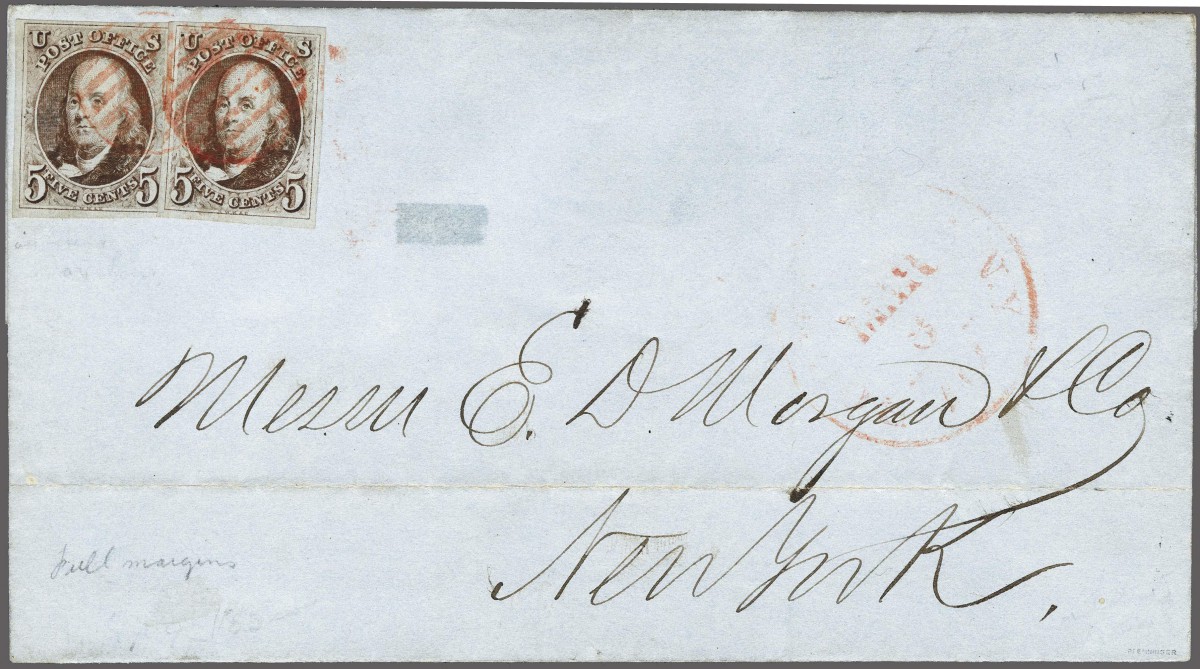 U S U S
POST OFFICE POST OFFICE
5 FIVE CENTS 5 5 FIVE CENTS 5
N.Y
MAR
Messrs E. D. Morgan & Co
New York.
Full margins
PFENNINGER